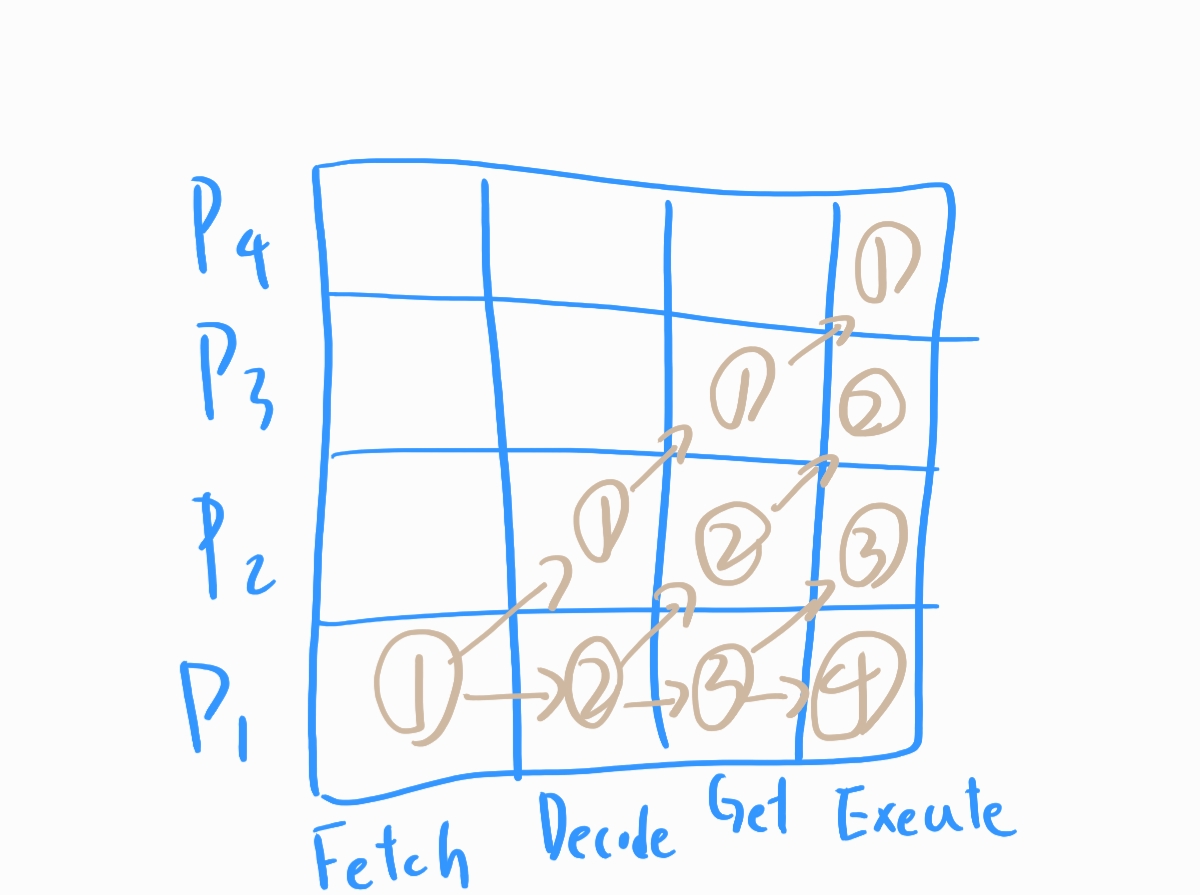 P4 ①
P3 ① ②
P2 ① ② ③
P1 ① ② ③ ④
Fetch Decode Get Execute